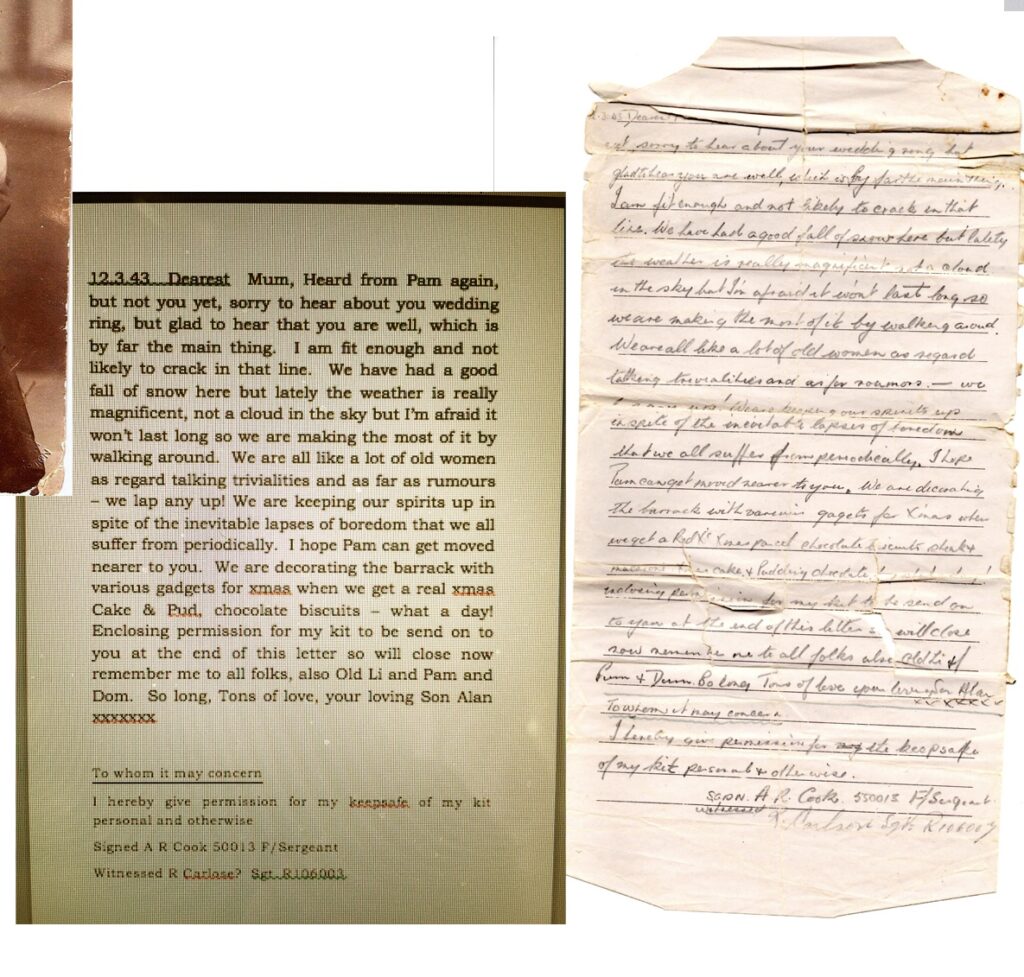 12.3.43 Dearest Mum, Heard from Pam again,
but not you yet, sorry to hear about you wedding
ring, but glad to hear that you are well, which is
by far the main thing. I am fit enough and not
likely to crack in that line. We have had a good
fall of snow here but lately the weather is really
magnificent, not a cloud in the sky but I'm afraid it
won't last long so we are making the most of it by
walking around. We are all like a lot of old women
as regard talking trivialities and as far as rumours
– we lap any up! We are keeping our spirits up in
spite of the inevitable lapses of boredom that we all
suffer from periodically. I hope Pam can get moved
nearer to you. We are decorating the barrack with
various gadgets for xmas when we get a real xmas
Cake & Pud, chocolate biscuits – what a day!
Enclosing permission for my kit to be send on to
you at the end of this letter so will close now
remember me to all folks, also Old Li and Pam and
Dom. So long, Tons of love, your loving Son Alan
xxxxxxx
To whom it may concern
I hereby give permission for my keepsafe of my kit
personal and otherwise
Signed A R Cook 50013 F/Sergeant
Witnessed R Carlose? Sgt. R106003.
.3.43 Dearest
yet, sorry to hear about your wedding ring but
glad to hear you are well, which is by far the main thing.
I am fit enough and not likely to crack in that
line. We have had a good fall of snow here but lately
the weather is really magnificent not a cloud
in the sky but I'm afraid it won't last long so
we are making the most of it by walking around.
We are all like a lot of old women as regard
talking trivialities and as for roumors. — we
up! We are keeping our spirits up
in spite of the inevitable lapses of boredom
that we all suffer from periodically. I hope
Pam can get moved nearer to you. We are decorating
the barrack with various gagets for Xmas when
we get a Red X's Xmas parcel chocolate biscuits steak &
cake, & Pudding chocolate
enclosing permission for my kit to be send on
to you at the end of this letter so will close
now remember me to all folks also Old Li &
Pum & Dum. So long Tons of love your loving Son Alan
xxxxxxx
To whom it may concern
I hereby give permission for the keepsafe
of my kit personal & otherwise.
SGDN. A R. Cook. 550013 F/Sergeant
witnessed Sgt. R106003